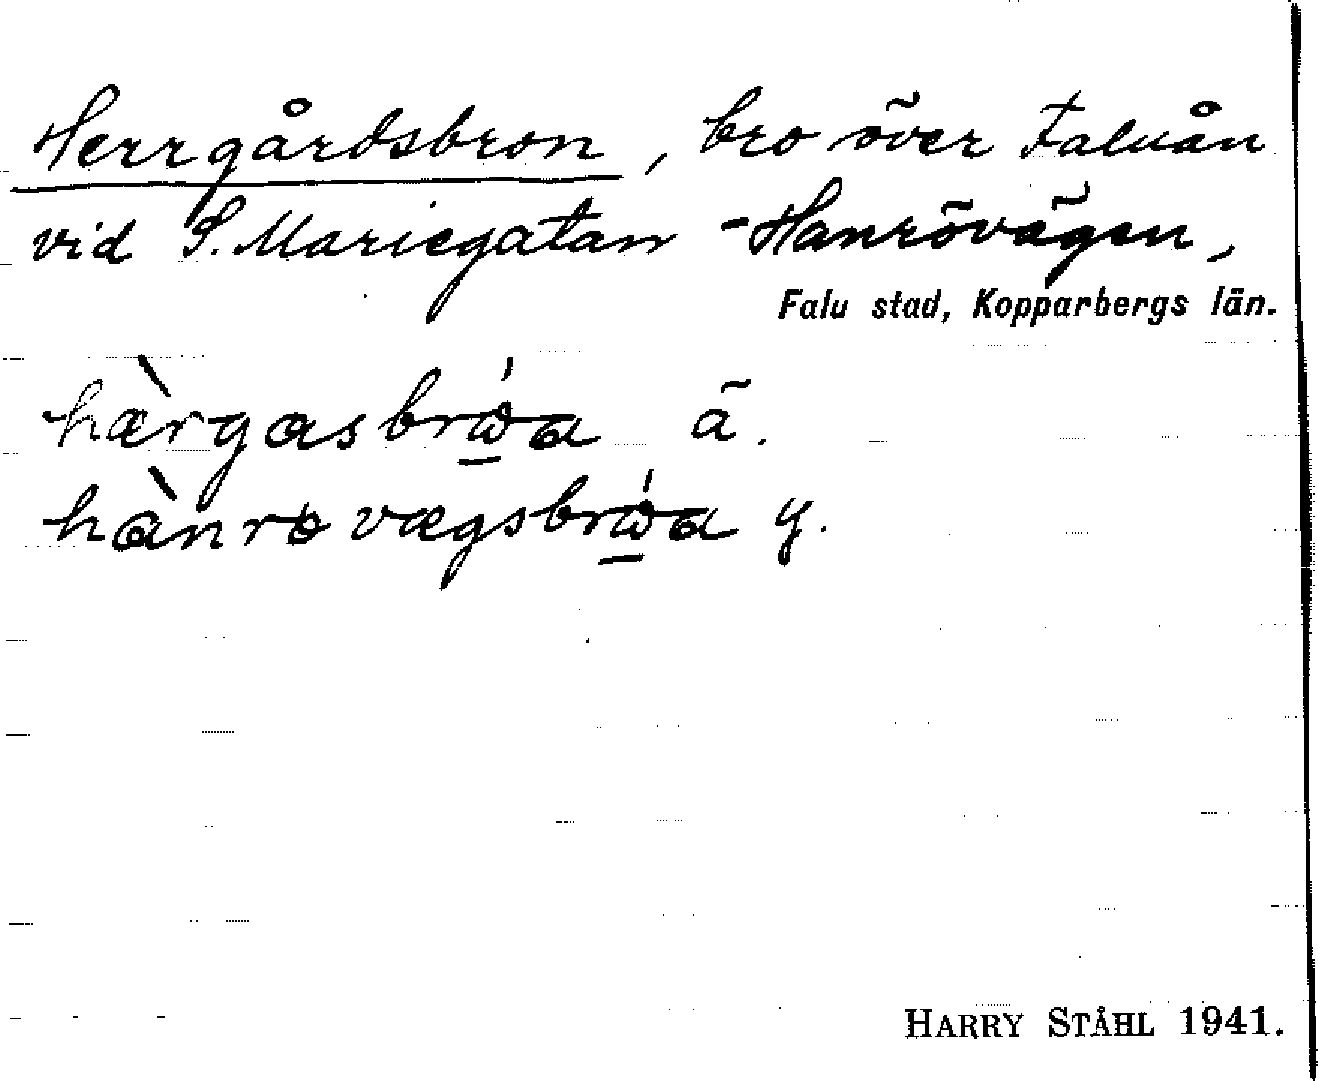 Herrgårdsbron, bro över Faluån
vid S. Mariegatan - Hanrövägen,
Falu stad, Kopparbergs län.
hæ̀rgasbrώ̲a ä.
hànrɵvægsbrώ̲a y.
HARRY STÅHL 1941.